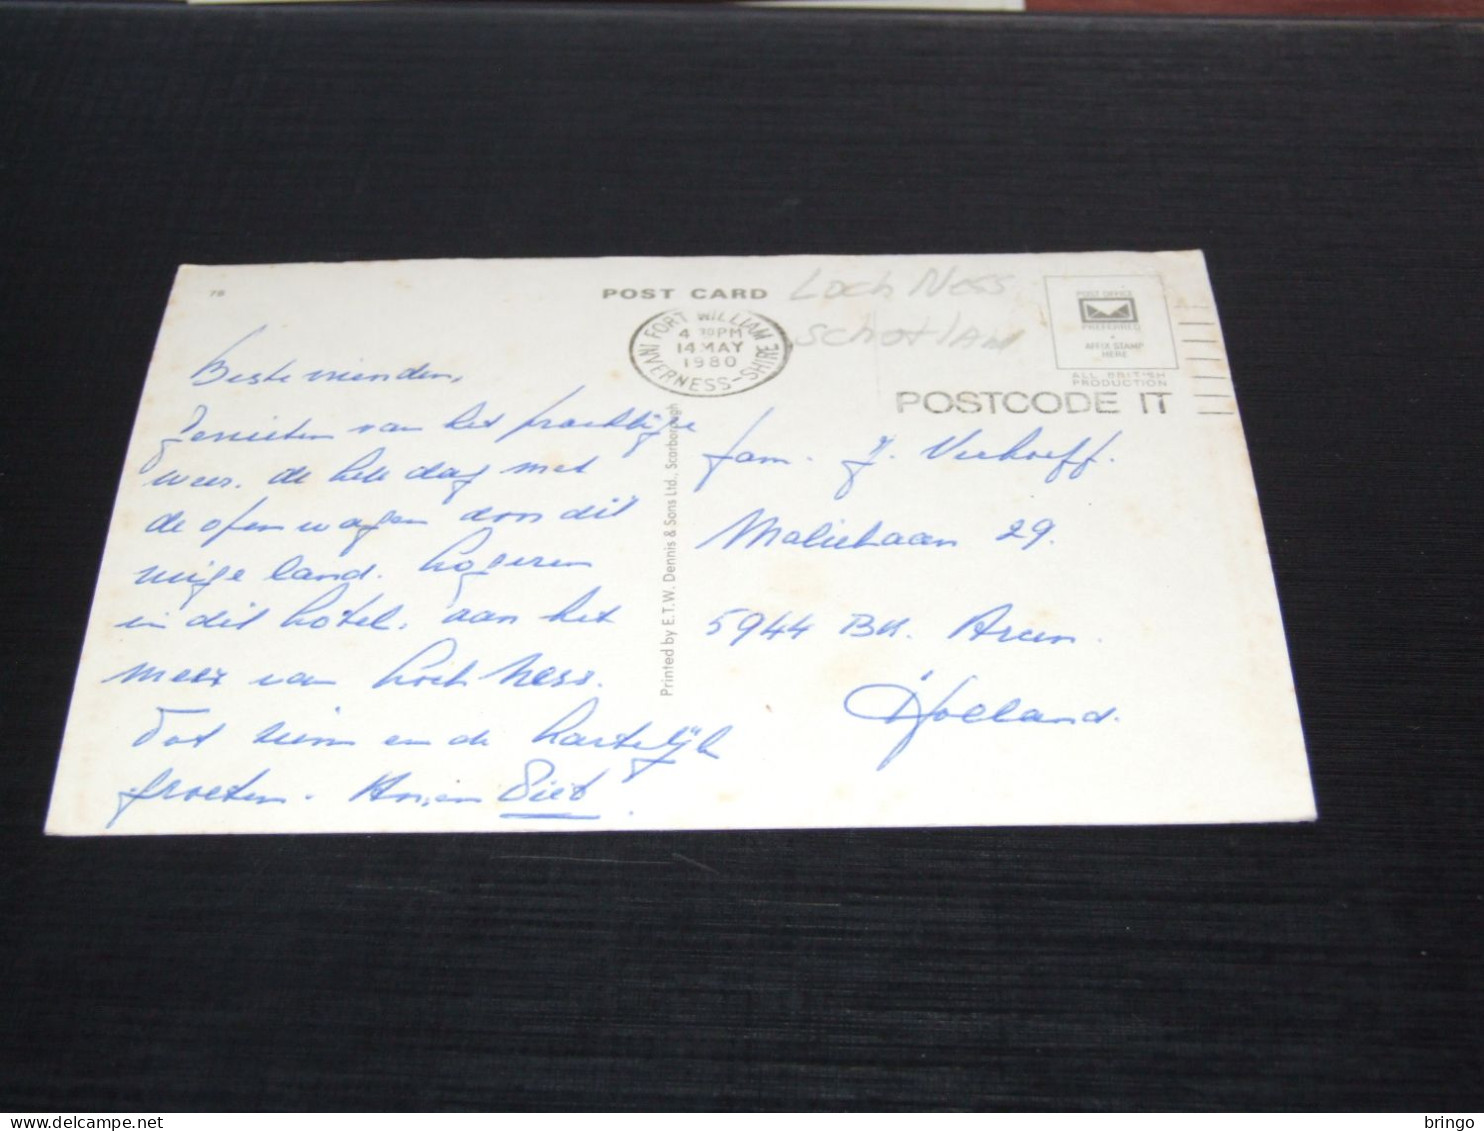 78
POST CARD
Loch Ness
Schotland
FORT WILLIAM
4 30PM
14 MAY
1980
INVERNESS-SHIRE
POST OFFICE
PREFERRED
AFFIX STAMP
HERE
ALL BRITISH
PRODUCTION
POSTCODE IT
Beste vrienden,
Genieten van het prachtige
weer. de hele dag met
de open wagen door dit
ruige land. Logeren
in dit hotel. aan het
meer van Loch Ness.
Tot ziens en de hartelijke
groeten. An en Piet.
Printed by E.T.W. Dennis & Sons Ltd., Scarborough
Fam. J. Verhoeff.
Maliebaan 29.
5944 BH. Arcen.
Holland.
bringo
www.delcampe.net